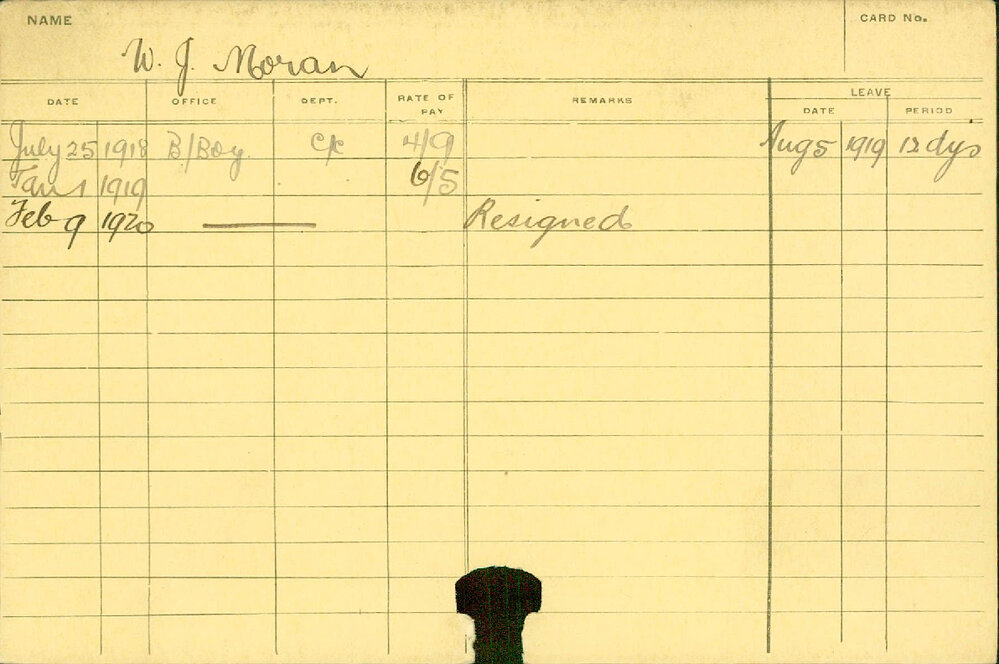 NAME
CARD No.
W. J. Moran
LEAVE
DATE OFFICE DEPT. RATE OF PAY REMARKS DATE PERIOD
July 25 1918 B/Boy C/c 4/9 Aug 5 1919 12 dys
Jan 1 1919 6/5
Feb 9 1920 Resigned